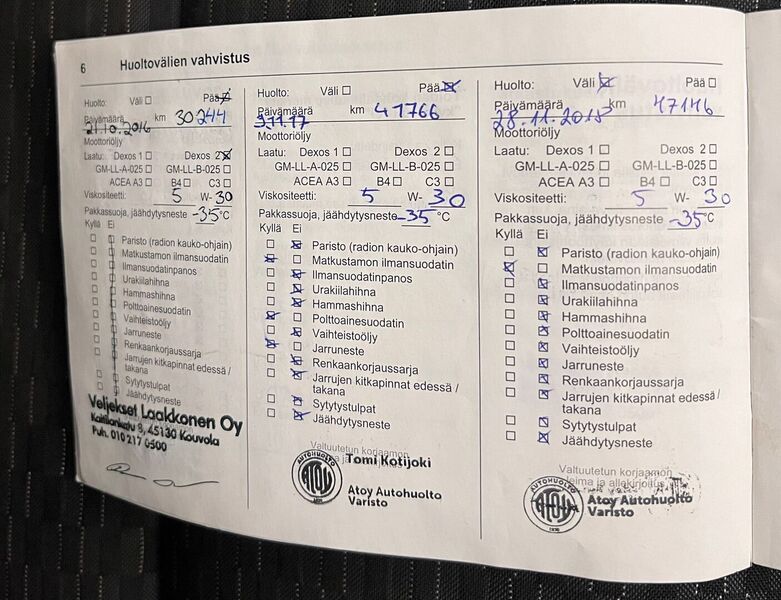 6 Huoltovälien vahvistus
Huolto: Väli Pää
Päivämäärä km 30244
21.10.2016
Moottoriöljy
Laatu: Dexos 1 Dexos 2
GM-LL-A-025 GM-LL-B-025
ACEA A3 B4 C3
Viskositeetti: 5 W- 30
Pakkassuoja, jäähdytysneste -35°C
Kyllä Ei
Paristo (radion kauko-ohjain)
Matkustamon ilmansuodatin
Ilmansuodatinpanos
Urakiilahihna
Hammashihna
Polttoainesuodatin
Vaihteistöljy
Jarruneste
Renkaankorjaussarja
Jarrujen kitkapinnat edessä /
takana
Sytytystulpat
Jäähdytysneste
Veljekset Laakkonen Oy
Kaitilankatu 9, 45130 Kouvola
Puh. 010 217 0500
Huolto: Väli Pää
Päivämäärä km 41766
9.11.17
Moottoriöljy
Laatu: Dexos 1 Dexos 2
GM-LL-A-025 GM-LL-B-025
ACEA A3 B4 C3
Viskositeetti: 5 W- 30
Pakkassuoja, jäähdytysneste -35 °C
Kyllä Ei
Paristo (radion kauko-ohjain)
Matkustamon ilmansuodatin
Ilmansuodatinpanos
Urakiilahihna
Hammashihna
Polttoainesuodatin
Vaihteistöljy
Jarruneste
Renkaankorjaussarja
Jarrujen kitkapinnat edessä /
takana
Sytytystulpat
Jäähdytysneste
Valtuutetun korjaamon
Tomi Kotijoki
AUTOHUOLTO
ATOY
Atoy Autohuolto
Varisto
Huolto: Väli Pää
Päivämäärä km 47146
28.11.2018
Moottoriöljy
Laatu: Dexos 1 Dexos 2
GM-LL-A-025 GM-LL-B-025
ACEA A3 B4 C3
Viskositeetti: 5 W- 30
Pakkassuoja, jäähdytysneste -35°C
Kyllä Ei
Paristo (radion kauko-ohjain)
Matkustamon ilmansuodatin
Ilmansuodatinpanos
Urakiilahihna
Hammashihna
Polttoainesuodatin
Vaihteistöljy
Jarruneste
Renkaankorjaussarja
Jarrujen kitkapinnat edessä /
takana
Sytytystulpat
Jäähdytysneste
Valtuutetun korjaamon
leima ja allekirjoitus
AUTOHUOLTO
ATOY
Atoy Autohuolto
Varisto